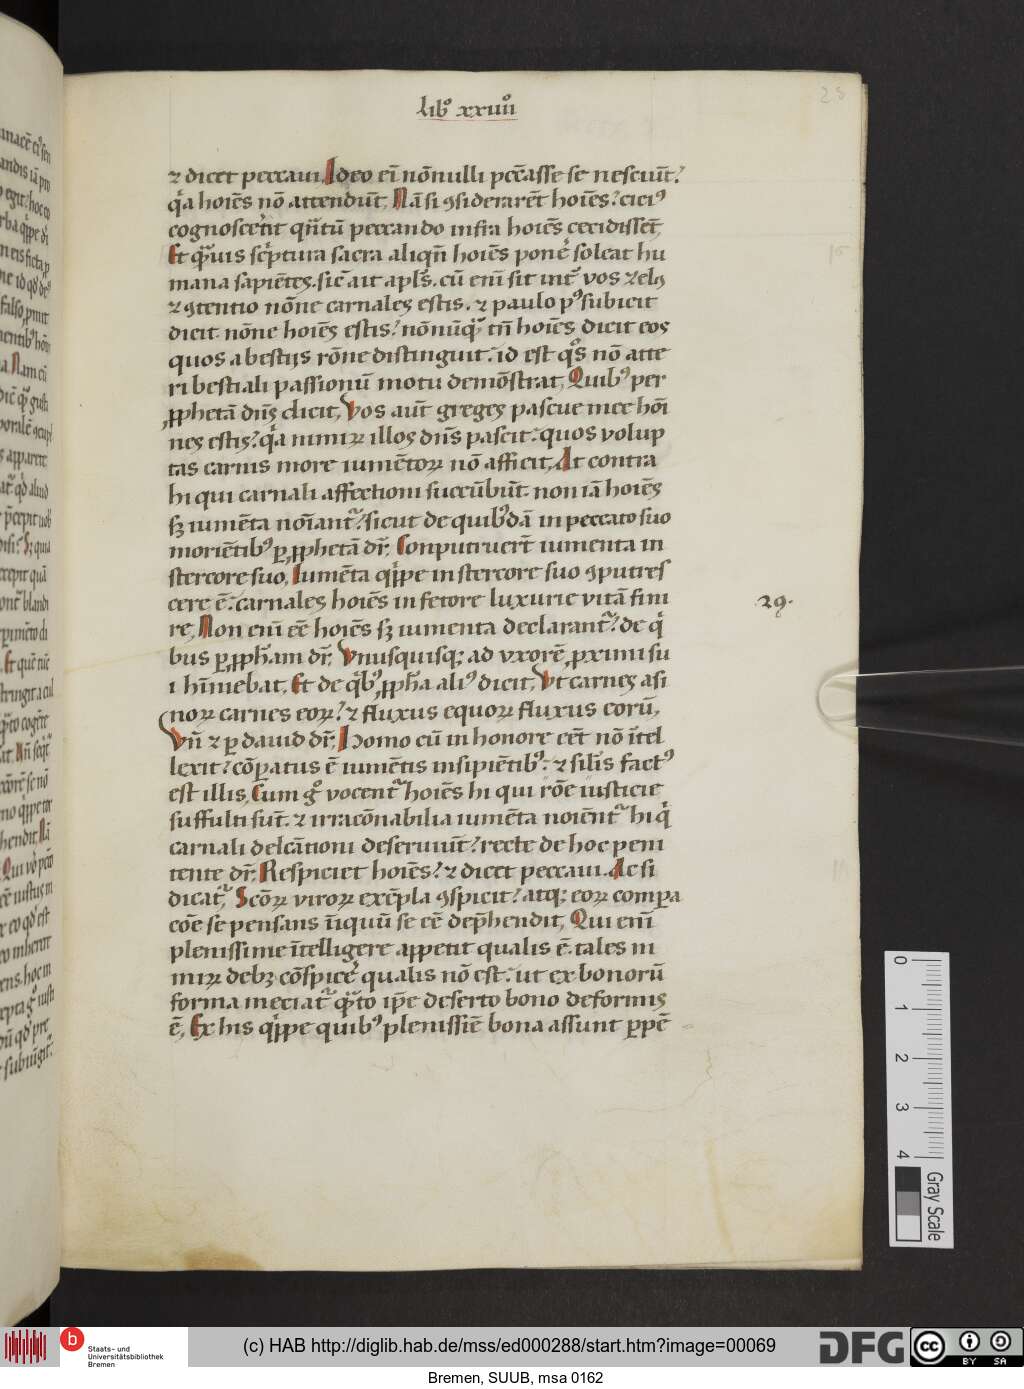 libꝰ xxiiiiᵒ
28
⁊ dicet peccaui. Ideo eī nōnulli pcc̄asse se nesciūt?
qͥa hoīes nō attendūt. Nā si ꝯsiderarēt hoīes? citiꝰ
cognoscerēt qn̄tū peccando infra hoīes cecidissēt,
Et qͣuis scͥptura sacra aliqn̄ hoīes ponēˀ soleat hu
mana sapiētes. sic̄ ait apl̄s. cū enī sit int̄ vos zelꝯ
⁊ ꝯtentio nōne carnales estis. ⁊ paulo pꝰ subicit
dicit. nōne hoīes estis? nōnūqͣ tn̄ hoīes dicit eos
quos a bestijs rōne distinguit. id est qͦs nō atte
ri bestiali passionū motu demōstrat, Quibꝰ per
ꝓphetā dn̄s dicit, Vos aūt greges pascue mee hoī
nes estis? qͥa nimiꝝ illos dn̄s pascit. quos volup
tas carnis more iumētoꝝ nō afficit, At contra
hi qui carnali affectioni succūbūt. non iā hoīes
sꝫ iumēta noīantᷣ? sicut de quibꝰdā in peccato suo
moriētibꝰ ꝑ ꝓphetā dr̄, Conputruerūt iumenta in
stercore suo, Iumēta qͥppe in stercore suo ꝯputres
cere ē. carnales hoīes in fetore luxurie vitā fini
re, Non enī ēē hoīes sꝫ iumenta declarantᷣ? de qͥ
bus ꝑ ꝓph̄am dr̄, Vnusquisqꝫ ad vxorē ꝓximi su
i hīnīebat, Et de qͥbꝰ ꝓph̄a aliꝰ dicit, Vt carnes asi
noꝝ carnes eoꝝ? ⁊ fluxus equoꝝ fluxus eorū,
Vn̄ ⁊ ꝑ dauid dr̄, Homo cū in honore eēt nō ītel
lexit? cōꝑatus ē iumētis insipiētibꝰ. ⁊ silīs factꝰ
est illis, Cum gͦ vocentᷣ hoīes hi qui rōe iusticie
suffulti sūt. ⁊ irracōnabilia iumēta noīentᷣ hi qͥ
carnali delcātioni deseruiūt? recte de hoc peni
tente dr̄, Respiciet hoīes? ⁊ dicet peccaui. Ac si
dicatᷣ, Scōꝝ viroꝝ exēpla ꝯspicit? atqꝫ eoꝝ compa
cōe se pensans īiquū se eē dep̄hendit, Qui enī
plenissime ītelligere appetit qualis ē. tales ni
miꝝ debꝫ cōspicēˀ qualis nō est. ut ex bonorū
forma meciatᷣ qͣto ip̄e deserto bono deformis
ē, Ex his qͥppe quibꝰ plenissīē bona assunt ꝑpē
.29.
0 1 2 3 4
Gray Scale
b
Staats- und
Universitätsbibliothek
Bremen
(c) HAB http://diglib.hab.de/mss/ed000288/start.htm?image=00069
DFG
cc BY SA
Bremen, SUUB, msa 0162